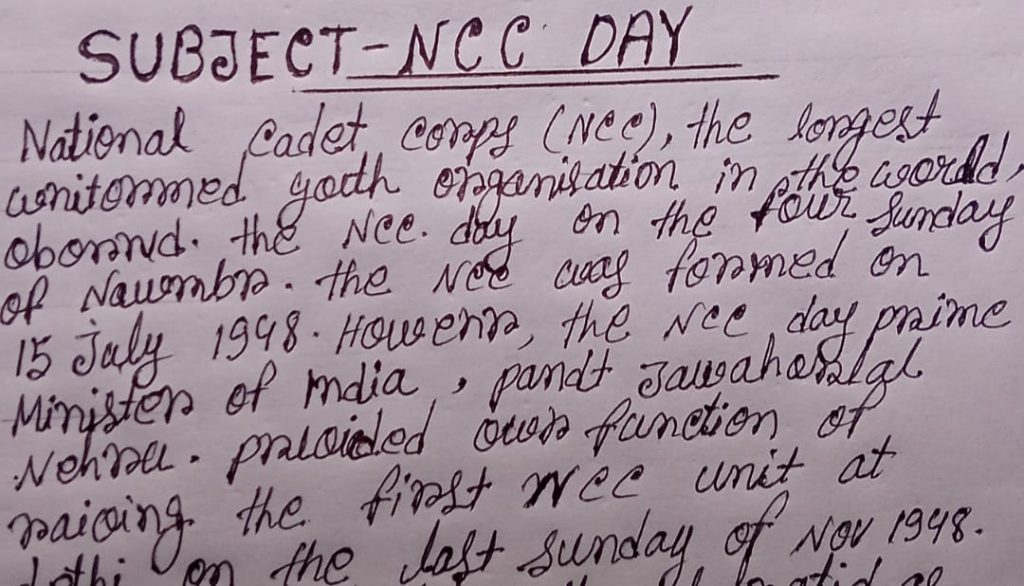 SUBJECT-NCC DAY
National Cadet Corps (NCC), the longest
unitormmed youth organisation in the world,
obornvd. the NCC. day on the four Sunday
of Nauombr. the NCC was formed on
15 July 1948. Howenr, the NCC day prime
Minister of India, pandt Jawaharlal
Nehru. praloided over function of
raising the first NCC unit at
on the last Sunday of Nov 1948.